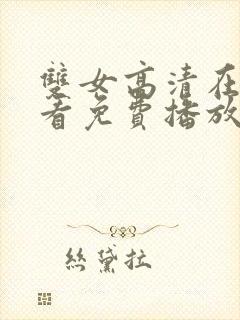 雙女高清在
看免費播放
絲黛拉